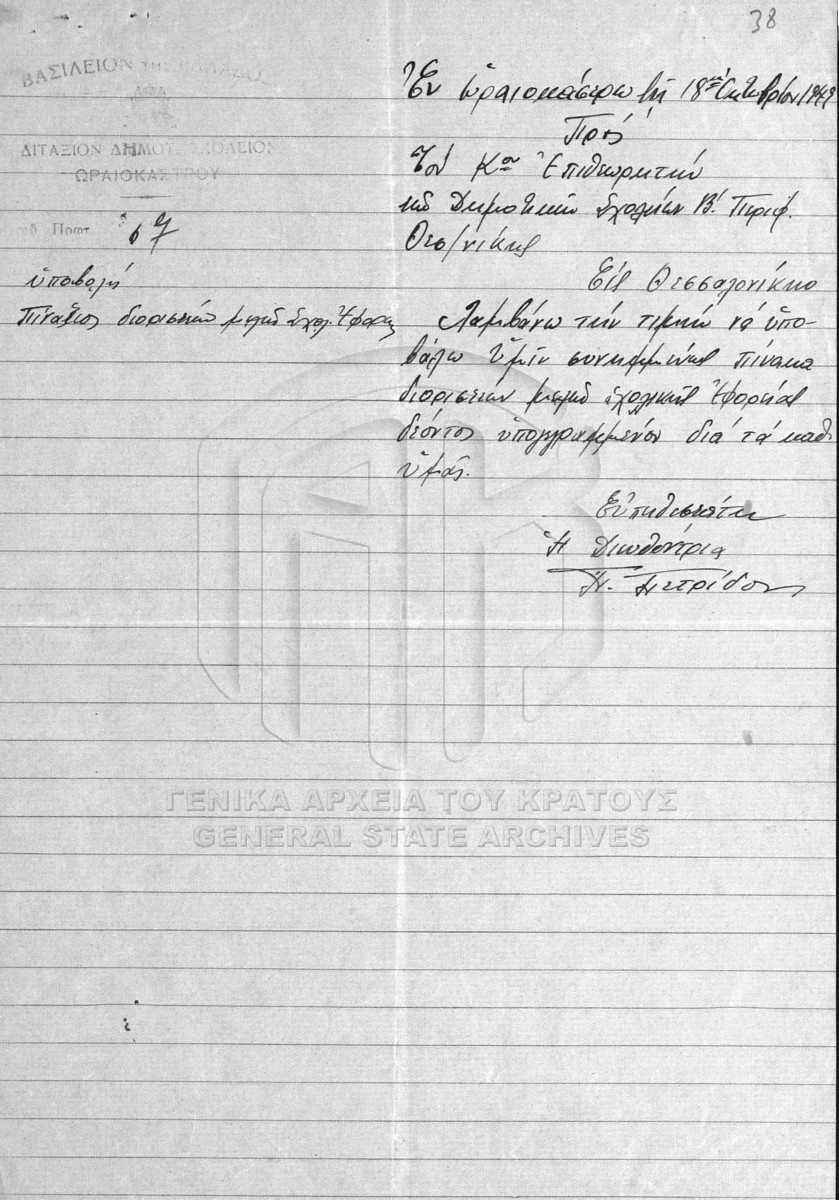 38
ΒΑΣΙΛΕΙΟΝ ΤΗΣ ΕΛΛΑΔΟΣ
ΔΙΤΑΞΙΟΝ ΔΗΜΟΤ. ΣΧΟΛΕΙΟΝ
ΩΡΑΙΟΚΑΣΤΡΟΥ
Πρωτ. 67
ὑποβολή
Πίνακος διορισμῶν μελῶν Σχολ. Ἐφορίας
Ἐν Ὡραιοκάστρῳ τῇ 18ῃ Ὀκτωβρίου 1949
Πρός
Τόν Κον Ἐπιθεωρητήν
τῶν Δημοτικῶν Σχολείων Β! Περιφ.
Θεσ/νίκης
Εἰς Θεσσαλονίκην
Λαμβάνω τήν τιμήν νά ὑπο-
βάλω ὑμῖν συνημμένως πίνακα
διορισμῶν μελῶν σχολικῆς Ἐφορείας
δεόντως ὑπογεγραμμένον διά τά καθ'
ὑμᾶς.
Εὐπειθεστάτη
Ἡ Διευθύντρια
Πετρίδου
ΓΕΝΙΚΑ ΑΡΧΕΙΑ ΤΟΥ ΚΡΑΤΟΥΣ
GENERAL STATE ARCHIVES